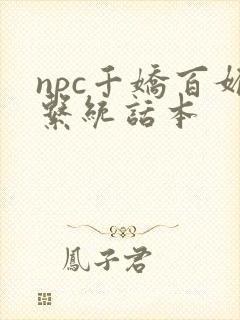 npc千嬌百媚
繫統話本
鳳子君